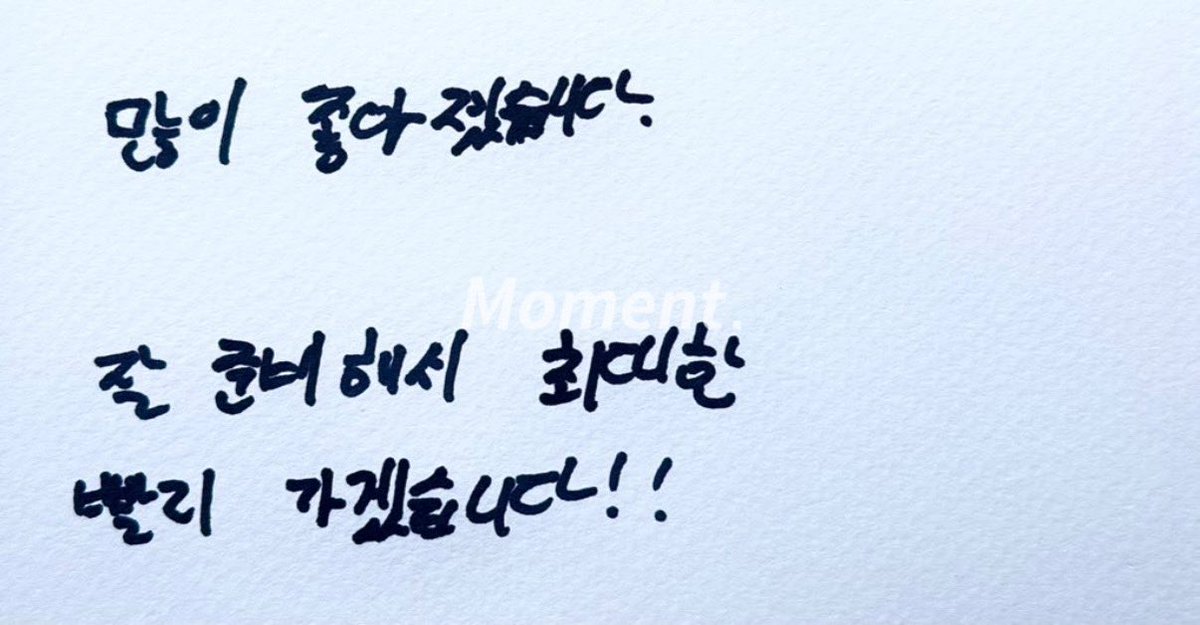 많이 좋아졌습니다.
Moment.
잘 준비해서 최대한
빨리 가겠습니다!!